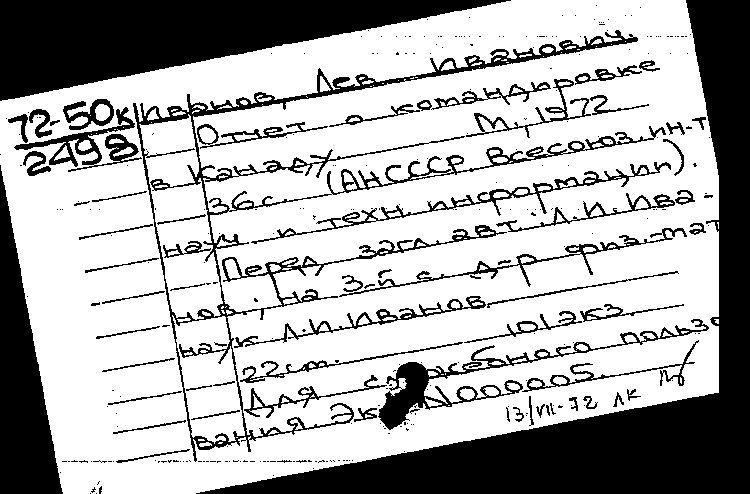 72-50к
2498
Иванов, Лев Иванович.
Отчет о командировке
в Канаду. М., 1972.
36с. (АН СССР. Всесоюз. ин-т
науч. и техн. информации).
Перед загл. авт.: Л.И. Ива-
нов.; на 3-й с. д-р физ.-мат
наук Л.И. Иванов.
22см. 101 экз.
Для служебного пользо
вания. Эк N000005.
13/VII-72 ЛК